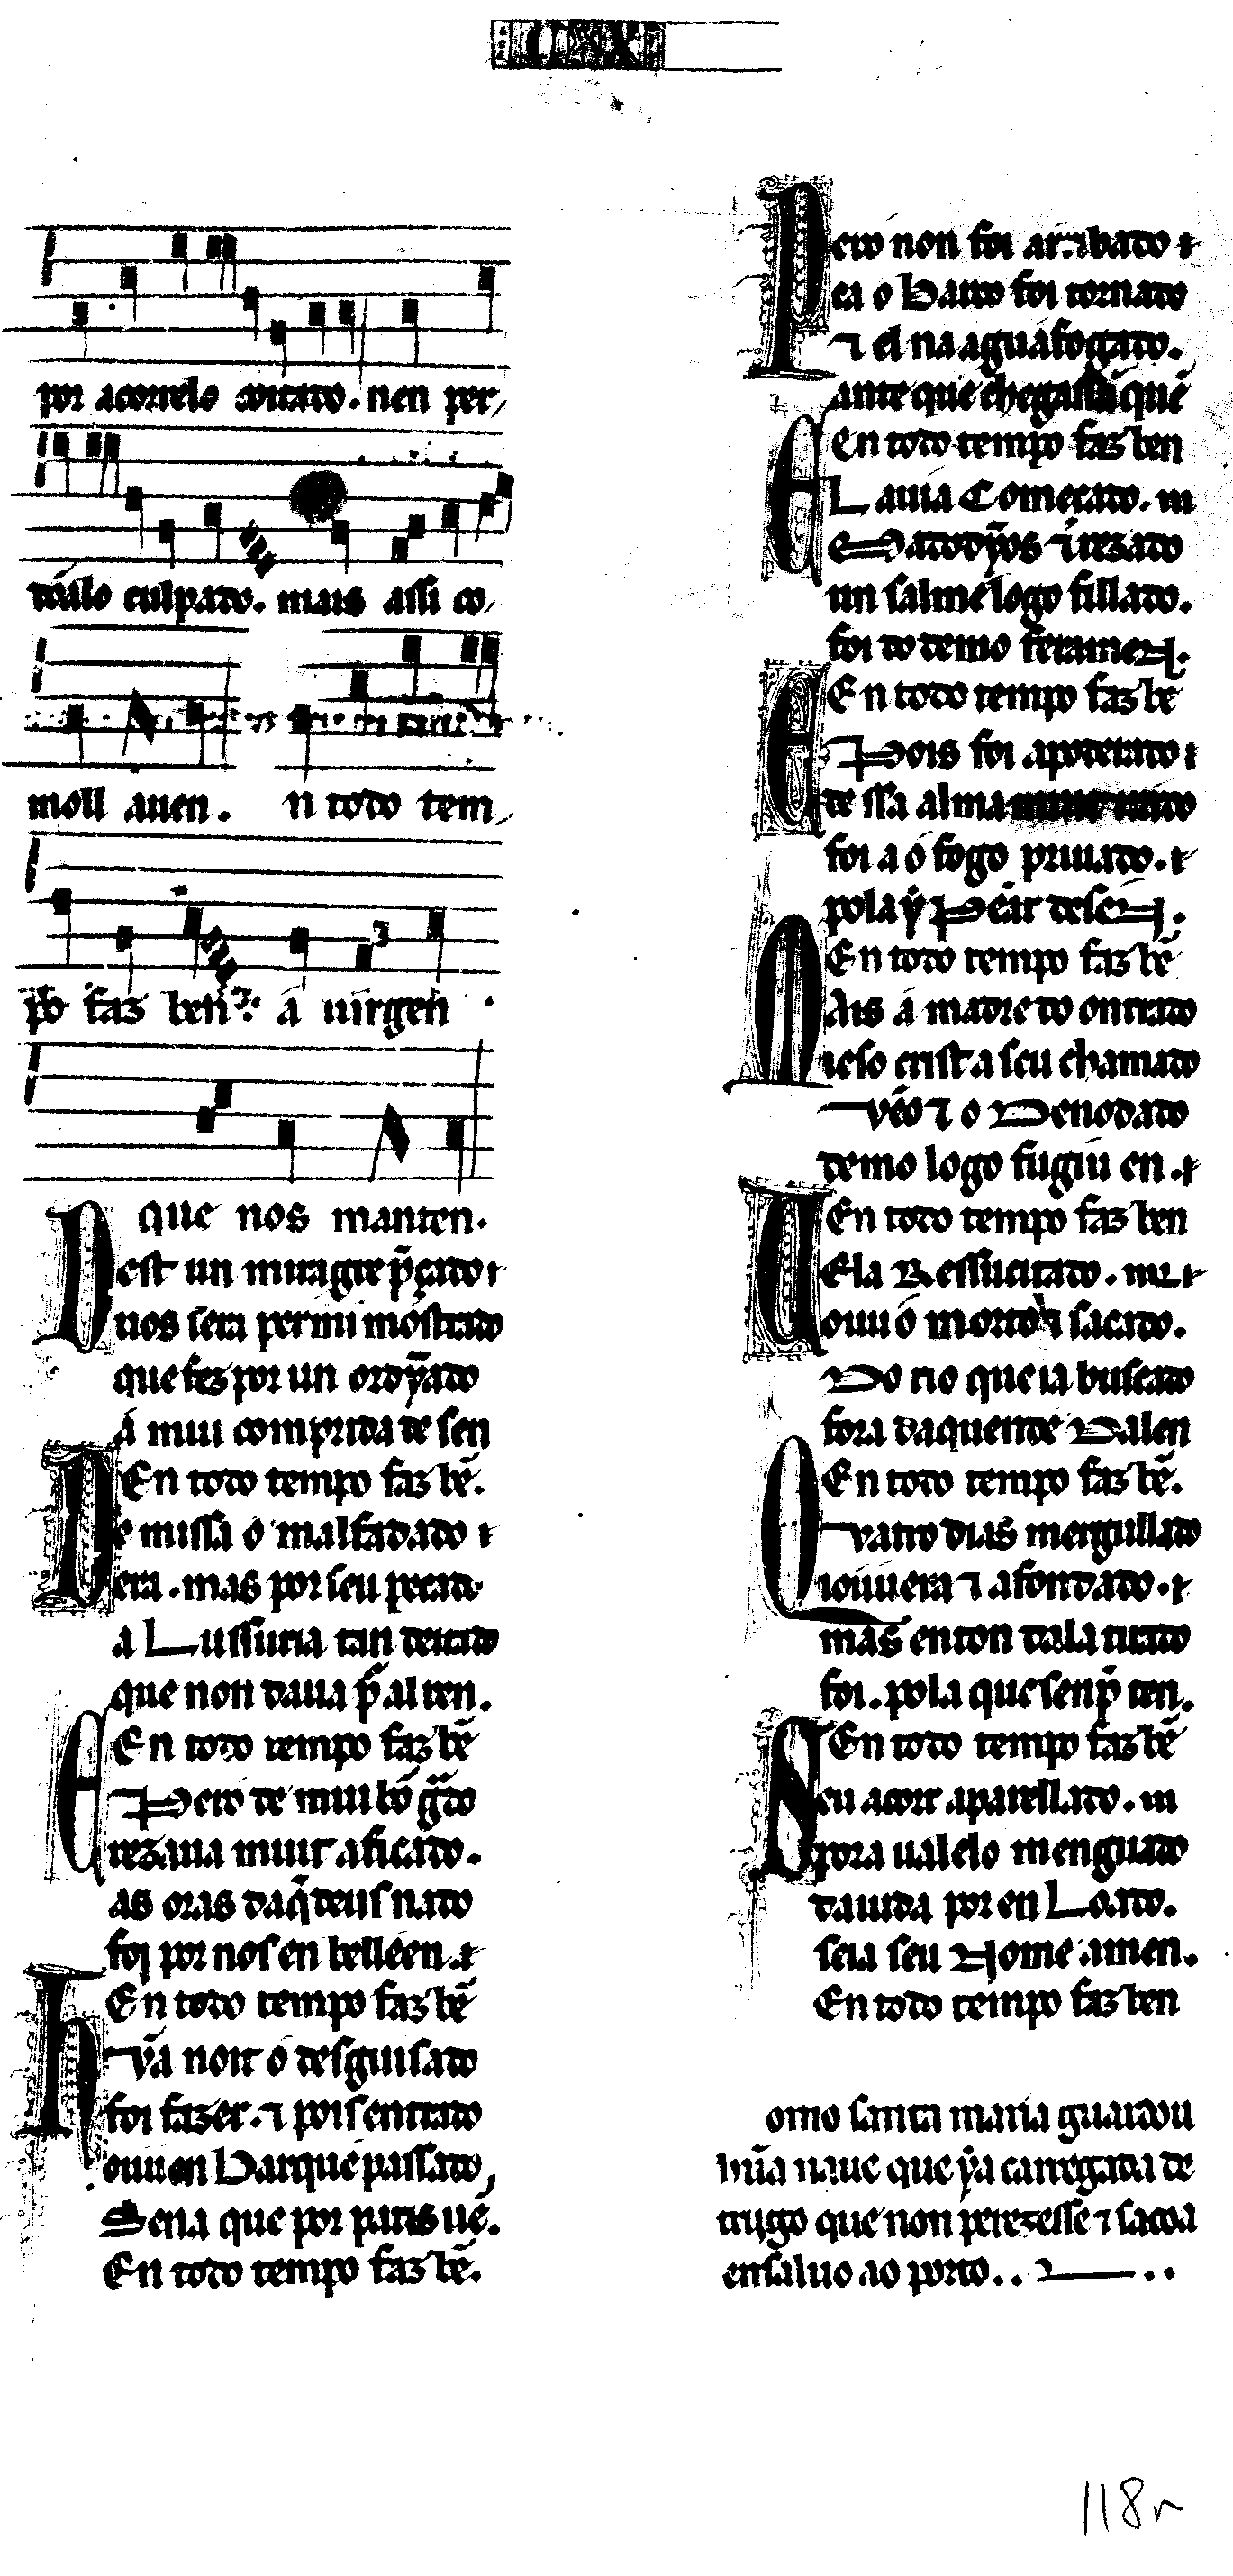 CXI
por acorrelo coitado. nen per
doálo culpado. mais assi co
moll auen. n todo tem
po faz ben á uirgen
que nos manten.
Dest un miragre p̃çado
uos sera per mi mostrado
que fez por un ordỹado
á mui comprida de sen
En todo tempo faz bẽ.
De missa o malfadado
era. mas por seu pecado
a Lussuria tan deitado
que non daua p̃ al ren.
En todo tempo faz bẽ
E Pero de mui bõ g̃do
rezaua muit aficado.
as oras daq̃ deus nado
foi por nos en belleen.
En todo tempo faz bẽ
hũa noit o desguisado
foi fazer. ⁊ pois entrado
ouu en Barque passado
Sena que por paris uẽ.
En todo tempo faz bẽ.
Pero non foi arribado
ea o Barco foi tornado
⁊ el na agua fogado.
ante que chegass á quẽ
En todo tempo faz ben
EL auia Començado. m
e Madodỹos ⁊ rezado
un salm e logo fillado.
foi do demo feramen.
En todo tempo faz bẽ
E Pois foi apoderado
dessa alma muit irado
foi a o fogo priuado.
pola ỹ Pear de sen.
En todo tempo faz bẽ
Mais a madre do onrrado
ieso crist a seu chamado
vẽo ⁊ o Denodado
demo logo fugiu en.
En todo tempo faz ben
U Ela Ressucitado. m
ouu o morto ⁊ sacado.
Do rio que ia buscado
fora daquend e Dalen
En todo tempo faz bẽ.
Quatro dias mergullado
iouuera ⁊ afondado.
mas enton dala tirado
foi. pola que senp̃ ten.
En todo tempo faz bẽ
Seu acorr aparellado. m
pora ualelo menguado
dauida por en Loado.
seia seu Nome amen.
En todo tempo faz ben
omo santa maria guardou
hũa naue que ỹa carregada de
trijgo que non perezesse ⁊ sacoa
en saluo ao porto..
118r